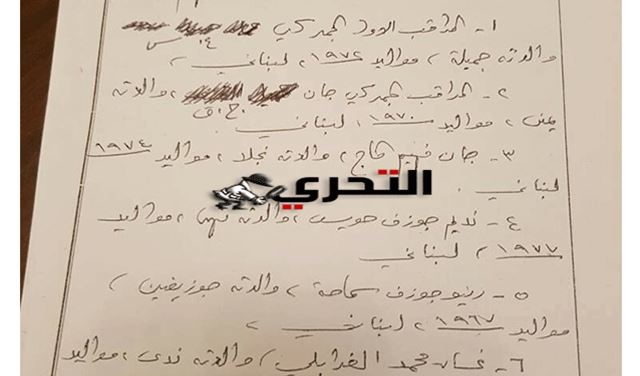 ١- المراقب الاول الجمركي
س.
والدته جميلة، مواليد ١٩٧٢، لبناني،
٢- المراقب الجمركي جان والدته
ج.ق
يمنى، مواليد ١٩٧٠، لبناني.
٣- جان الحاج، والدته نجلا، مواليد ١٩٧٤
لبناني.
التحري
٤- نديم جوزف حويس، والدته نهى، مواليد
١٩٧٧، لبناني
٥- رينو جوزف سماحة، والدته جوزيفين،
مواليد ١٩٦٧، لبناني،
٦- غسان محمد الغرابلي، والدته ندى، مواليد